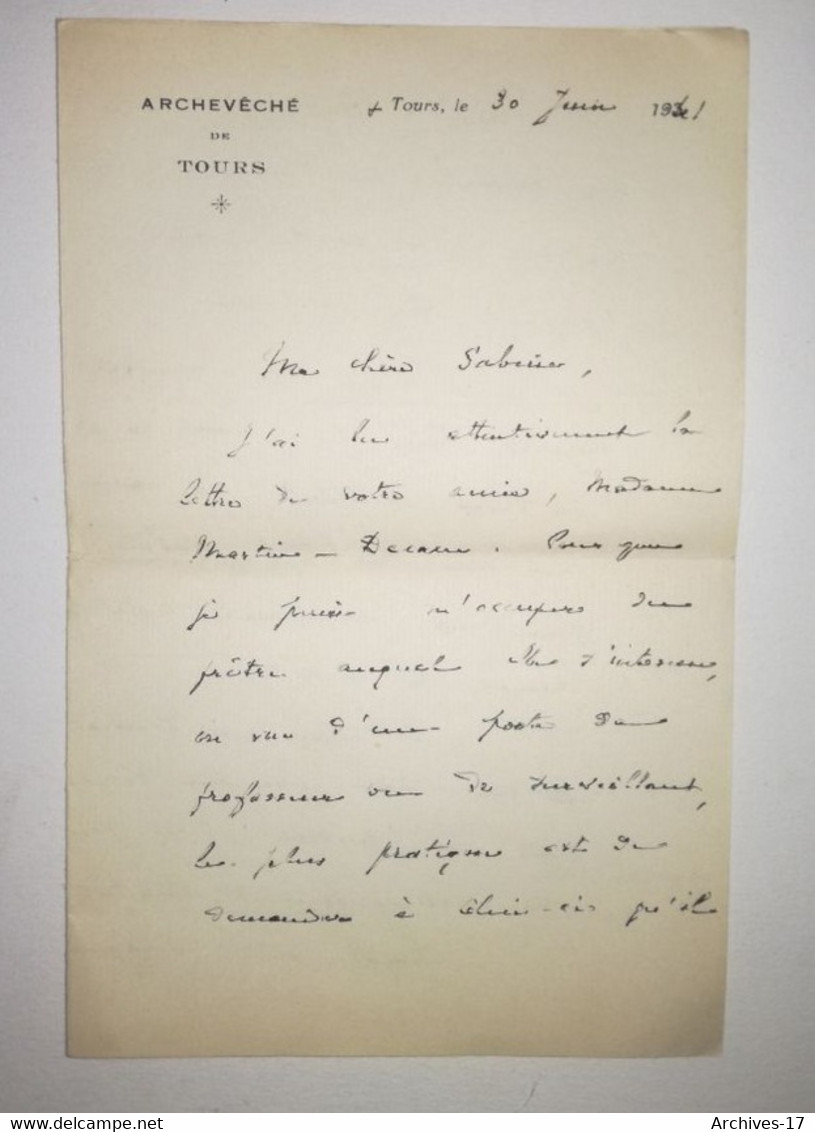 ARCHEVÊCHÉ
DE
TOURS
+ Tours, le 30 Juin 1941
Ma chère Sabine,
J'ai lu attentivement la
lettre de votre amie, Madame
Martin - . Pour que
je puisse m'occuper du
prêtre auquel elle s'intéresse,
en vue d'un poste de
professeur ou de surveillant,
le plus pratique est de
demander à celui-ci qu'il
www.delcampe.net
Archives-17